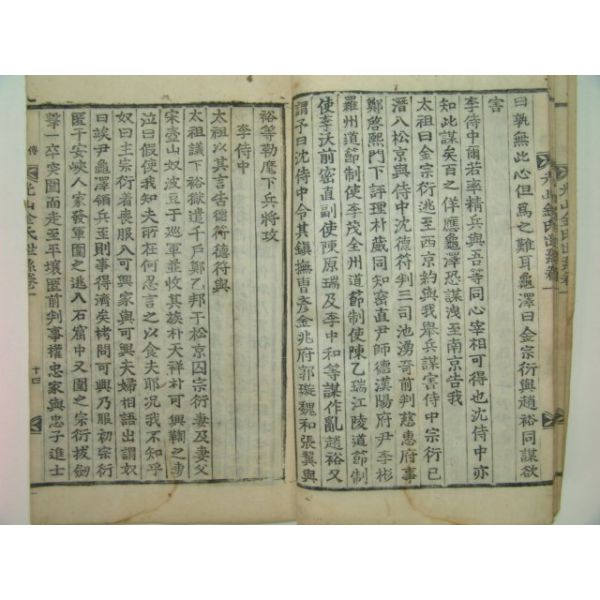 曰孰無此心但爲之難耳龜澤曰金宗衍與趙裕同謀欲
害
李侍中爾若率精兵與吾等同心宰相可得也沈侍中亦
知此謀矣百之佯應龜澤恐謀洩至南京告我
太祖曰金宗衍逃至西京約與我擧兵謀害侍中宗衍已
潛入松京與侍中沈德符判三司池湧奇前判慈惠府事
鄭煕啓門下評理朴葳同知密直尹師德漢陽府尹李彬
羅州道節制使李茂全州道節制使陳乙瑞江陵道節制
使李沃前密直副使陳原瑞及李中和等謀作亂趙裕又
謂予曰沈侍中令其鎭撫曺彦金兆府郭璇魏和張翼與
裕等勒麾下兵將攻
李侍中
太祖以其言告德符德符與
太祖議下裕獄遣千戶鄭乙邦于松京囚宗衍妻及妻父
宋壼山奴波豆于巡軍並收其族朴天祥朴可興鞫之妻
泣曰假使我知夫所在何忍言之以食夫耶况我不知乎
奴曰主宗衍者喪服入可興家與可興夫婦相語出謂奴
曰俟尹龜澤領兵至則事得濟矣拷問可興乃服初宗衍
匿于安峽人家發軍圍之逃入石窟中又圍之宗衍拔劒
擊一卒突圍而走至平壤匿前判事權忠家與忠子進士
傳
光山金氏世系卷一
十四
光山金氏世系卷一